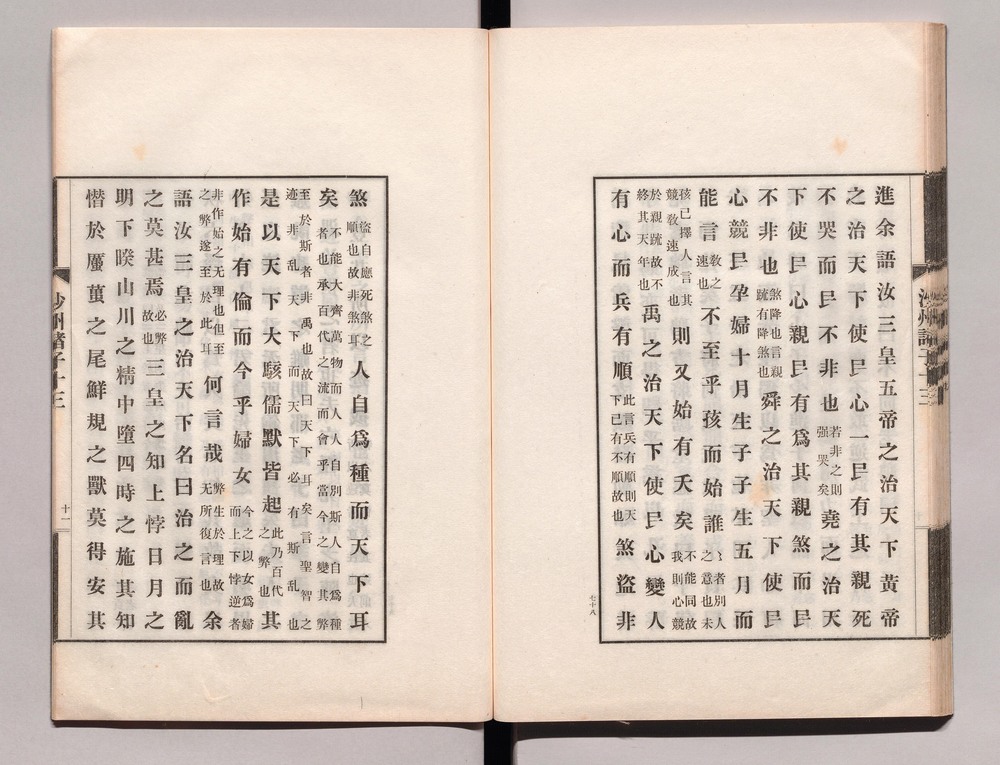 進余語汝三皇五帝之治天下黃帝
之治天下使民心一民有其親死
不哭而民不非也若非之則强哭矣堯之治天
下使民心親民有爲其親煞而民
不非也煞降也言親踈有降煞也舜之治天下使民
心競民孕婦十月生子子生五月而
能言教之速也不至乎孩而始誰〻者別人之意也未
孩已擇人言其競教速成也則又始有夭矣不能同故我則心競
於親踈故不終其天年也禹之治天下使民心變人
有心而兵有順此言兵有順則天下已有不順故也煞盜非
七十八
煞盜自應死煞之順也故非煞耳人自爲種而天下耳
矣不能大齊萬物而人人自別斯人自爲種者也承百代之流而會乎當今之變其弊
至於斯者非禹也故曰天下耳矣言聖智之迹非乱天下而天下必有斯乱也
是以天下大駭儒默皆起此乃百代之弊也其
作始有倫而今乎婦女今之以女爲婦而上下悖逆者
非作始之无理也但至之弊遂至於此耳何言哉弊生於理故无所復言也余
語汝三皇之治天下名曰治之而亂
之莫甚焉必弊故也三皇之知上悖日月之
明下睽山川之精中墮四時之施其知
憯於厲蠆之尾鮮規之獸莫得安其
沙州諸子十三
十一